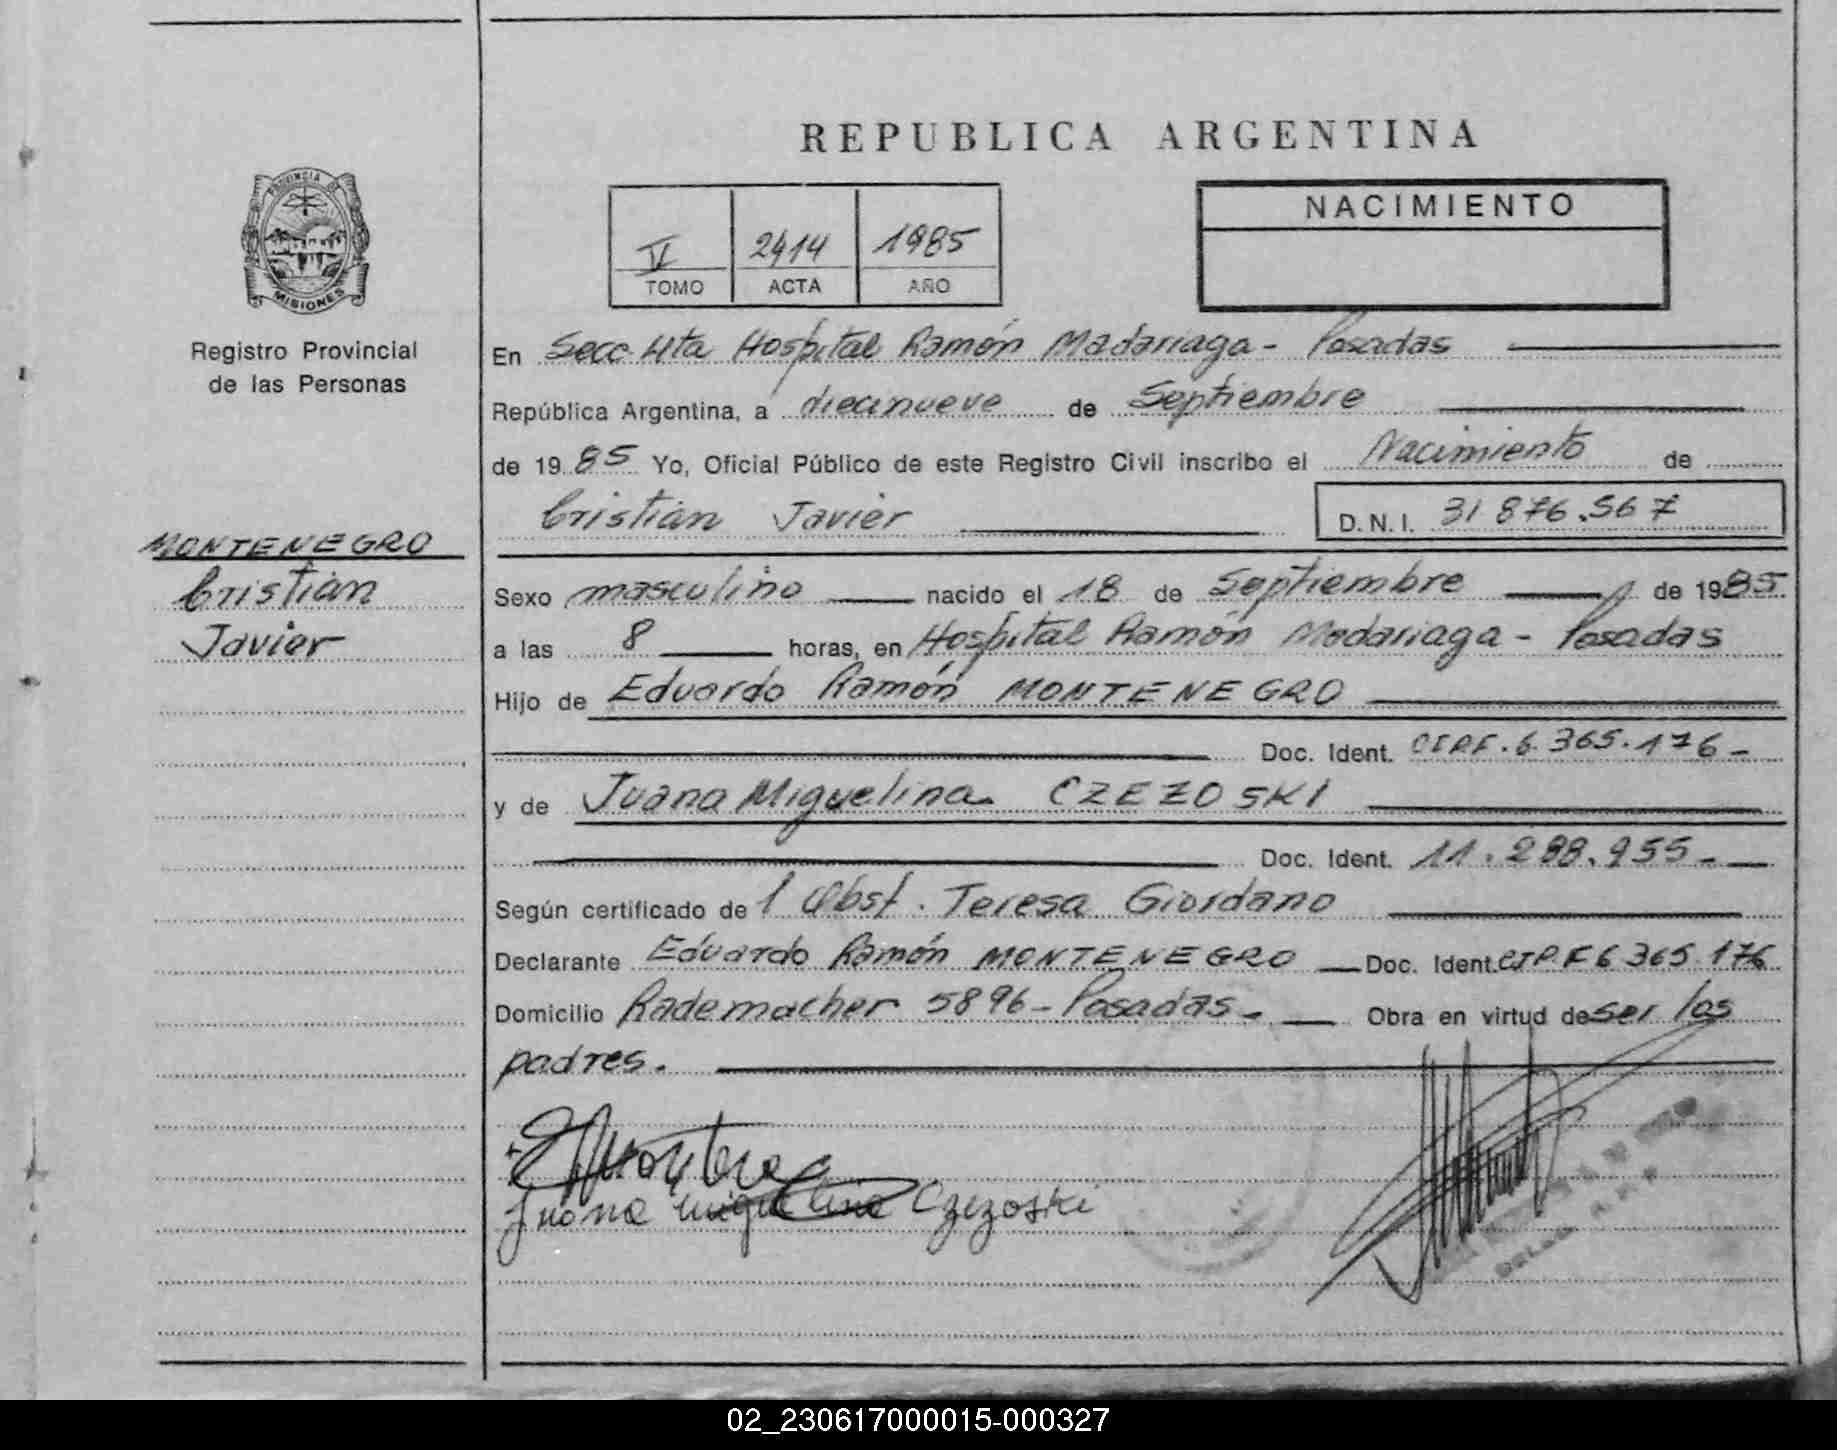 REPUBLICA ARGENTINA
PROVINCIA DE
MISIONES
Registro Provincial
de las Personas
MONTENEGRO
Cristian
Javier
V 2414 1985
TOMO ACTA AÑO
NACIMIENTO
En Secc 4ta Hospital Ramón Madariaga - Posadas
República Argentina, a diecinueve de Septiembre
de 1985 Yo, Oficial Público de este Registro Civil inscribo el Nacimiento de
Cristian Javier D.N.I. 31 876.567
Sexo masculino nacido el 18 de Septiembre de 1985.
a las 8 horas, en Hospital Ramón Madariaga - Posadas
Hijo de Eduardo Ramón MONTENEGRO
Doc. Ident. CIPF.6.365.176-
y de Juana Miguelina CZEZOSKI
Doc. Ident. 11.288.955-
Según certificado de l Obst. Teresa Giordano
Declarante Eduardo Ramón MONTENEGRO Doc. Ident. CIPF6 365.176
Domicilio Rademacher 5896-Posadas. Obra en virtud de ser los
padres.
Juana Miguelina Czezoski
02_230617000015-000327